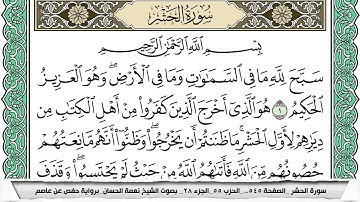 سُورَةُ الحَشْرِ
بِسْمِ اللَّهِ الرَّحْمَٰنِ الرَّحِيمِ
سَبَّحَ لِلَّهِ مَا فِي السَّمَاوَاتِ وَمَا فِي الْأَرْضِ ۖ وَهُوَ الْعَزِيزُ
الْحَكِيمُ ١ هُوَ الَّذِي أَخْرَجَ الَّذِينَ كَفَرُوا مِنْ أَهْلِ الْكِتَابِ مِن
دِيَارِهِمْ لِأَوَّلِ الْحَشْرِ ۚ مَا ظَنَنتُمْ أَن يَخْرُجُوا ۖ وَظَنُّوا أَنَّهُم مَّانِعَتُهُمْ
حُصُونُهُم مِّنَ اللَّهِ فَأَتَاهُمُ اللَّهُ مِنْ حَيْثُ لَمْ يَحْتَسِبُوا ۖ وَقَذَفَ
سورة الحشر _الصفحة ٥٤٥_ الحزب ٥٥_ الجزء ٢٨_ بصوت الشيخ نعمة الحسان_ برواية حفص عن عاصم